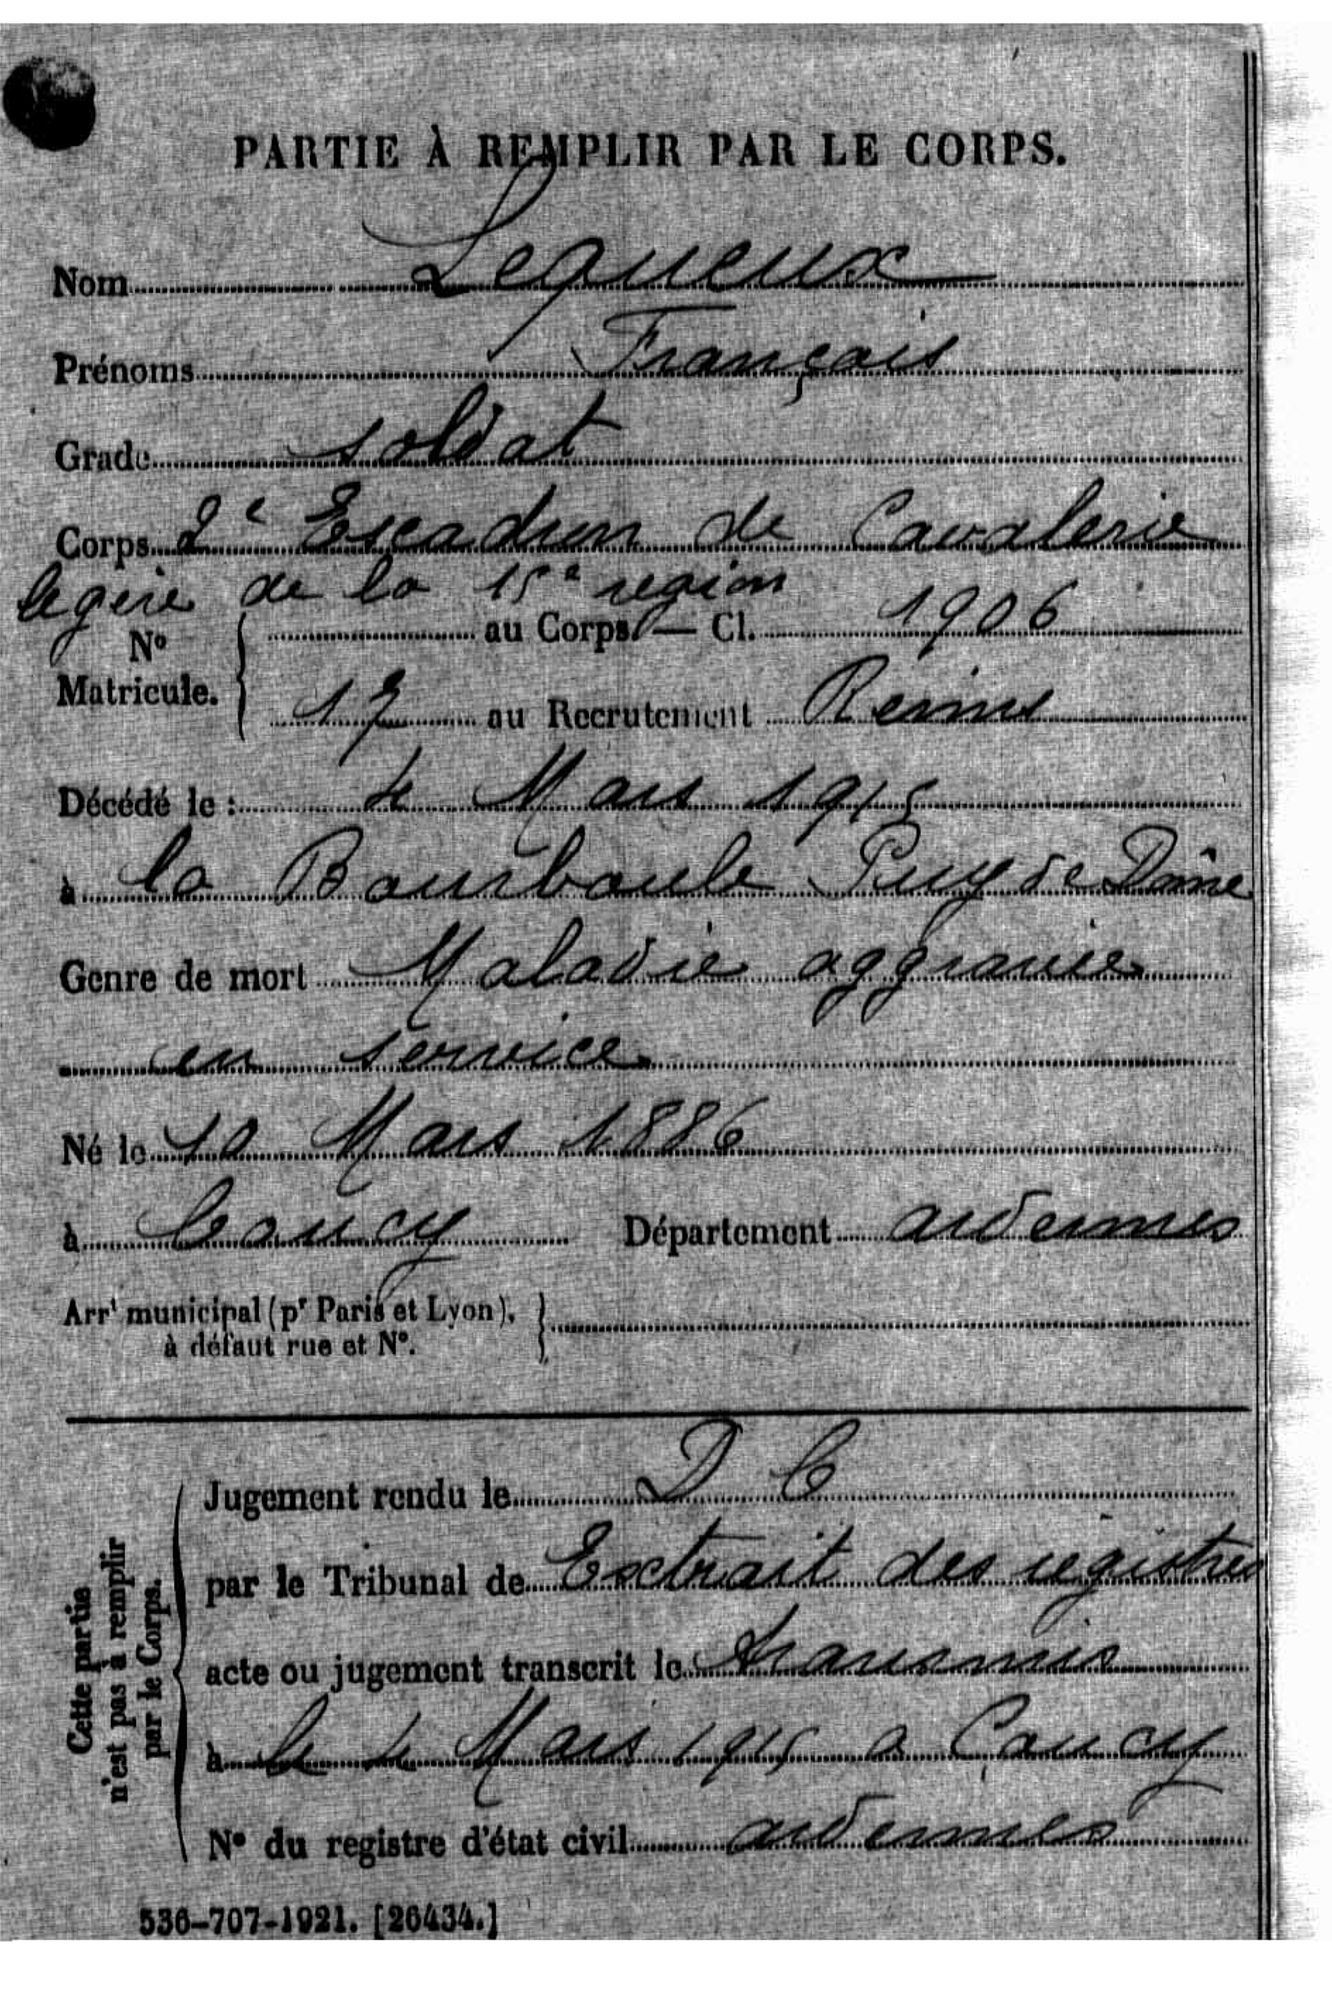 PARTIE À REMPLIR PAR LE CORPS.
Nom Lequeux
Prénoms François
Grade soldat
Corps 2e Escadron de Cavalerie
legère de la 15e region
No Matricule. au Corps. — Cl. 1906
17 au Recrutement Reims
Décédé le : 4 Mars 1915
à la Bourboule Puy de Dôme
Genre de mort Maladie aggravée
en service
Né le 10 Mars 1886
à Coucy Département ardennes
Arrt municipal (pr Paris et Lyon),
à défaut rue et No.
Jugement rendu le D C
par le Tribunal de Extrait des registres
acte ou jugement transcrit le transmis
à le 4 Mars 1915 a Coucy
No du registre d'état civil ardennes
Cette partie
n'est pas à remplir
par le Corps.
536-707-1921. [26434.]